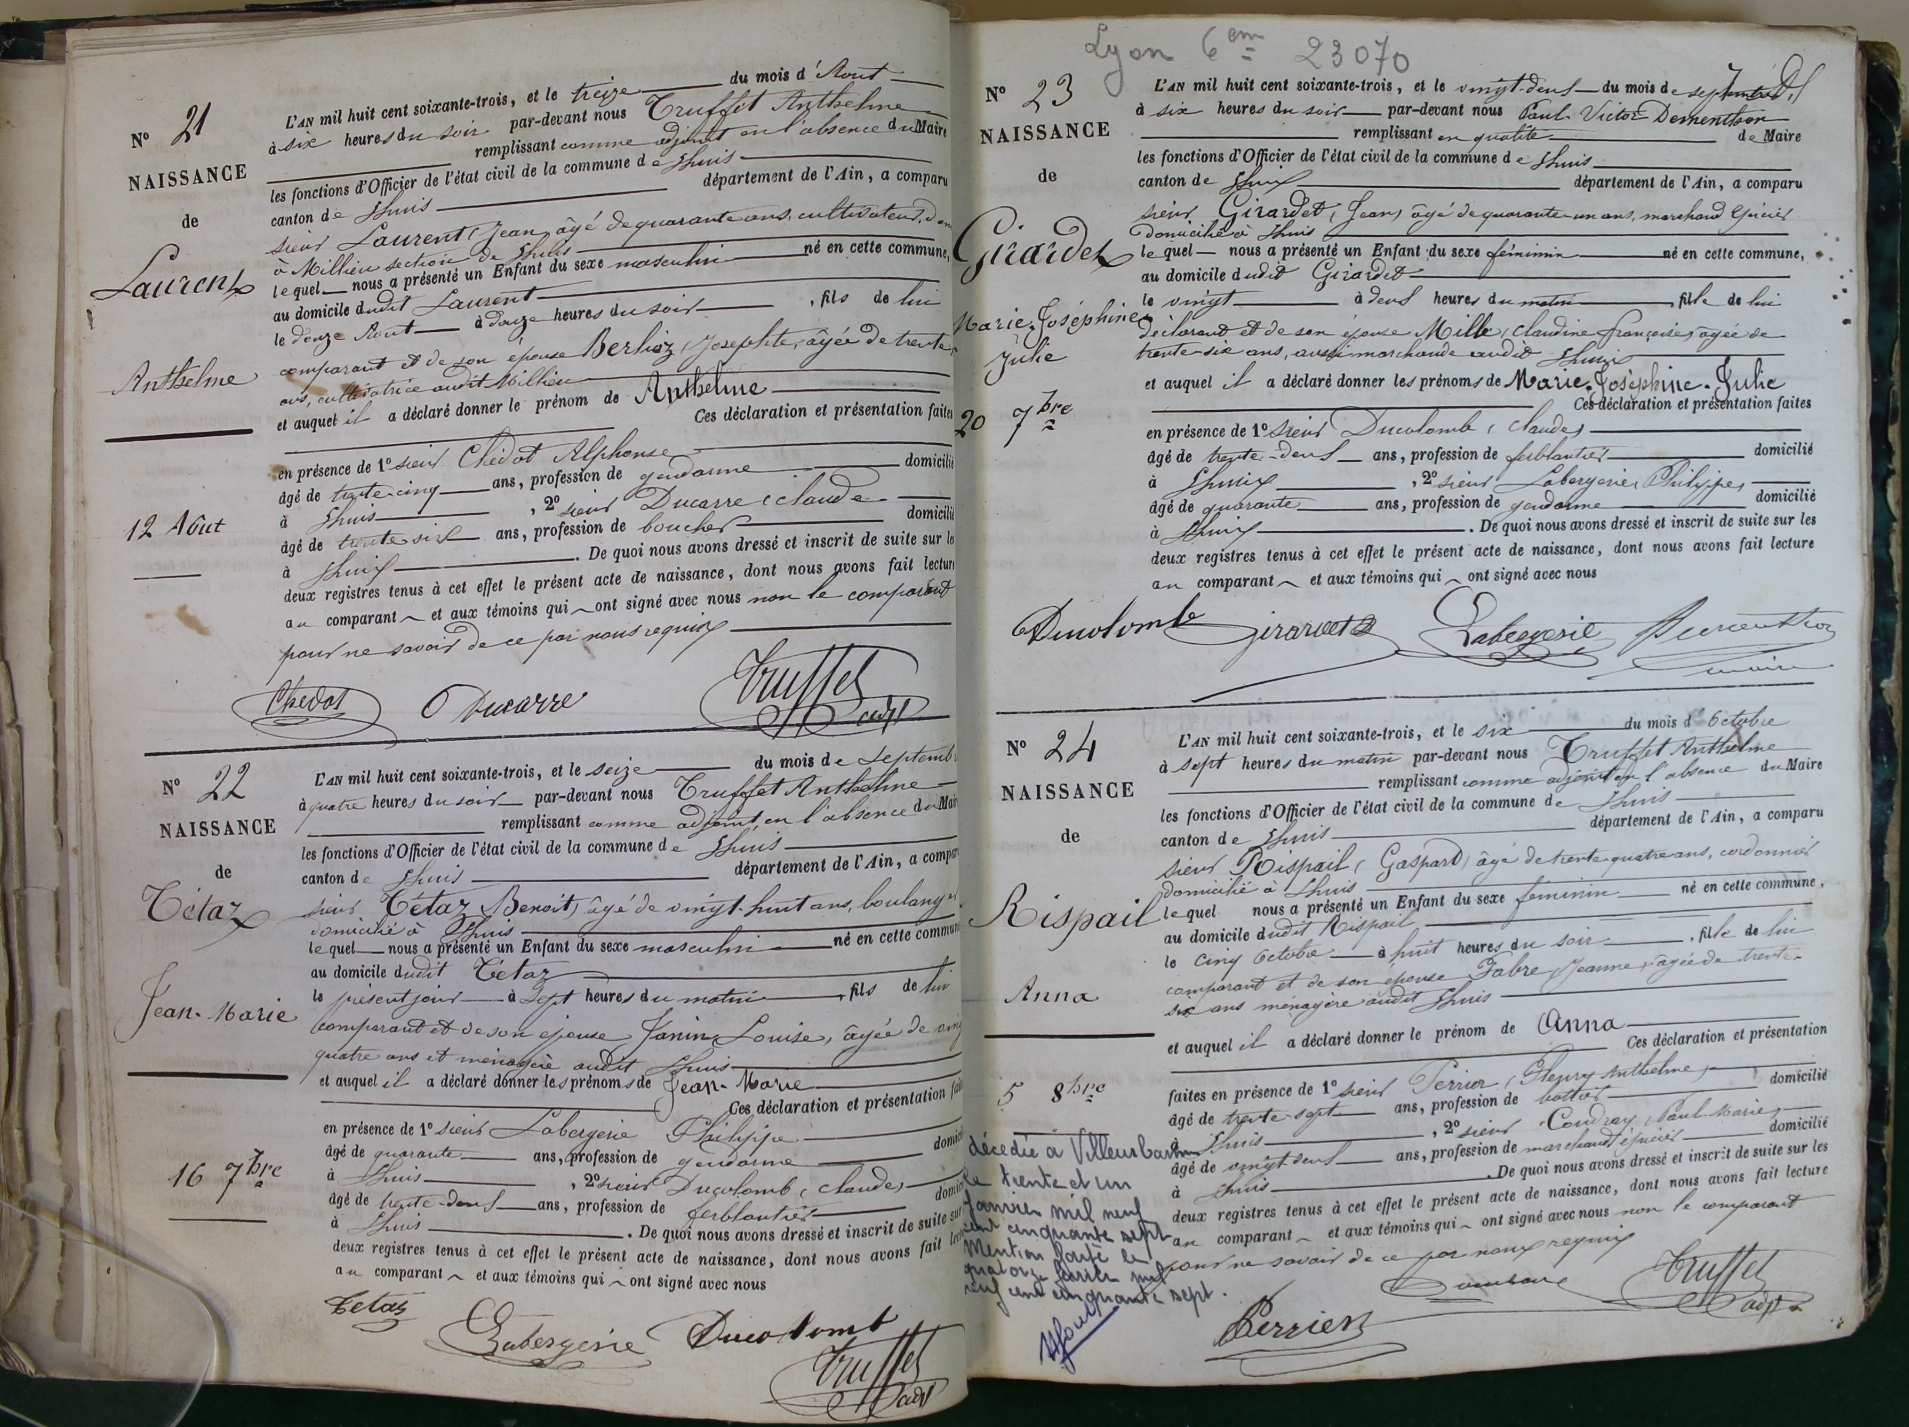 N° 21
NAISSANCE
de
Laurent
Anthelme
12 Août
L'AN mil huit cent soixante-trois, et le treize du mois d'Aout
à six heures du soir par-devant nous Truffet Anthelme
remplissant comme adjoint en l'absence du Maire
les fonctions d'Officier de l'état civil de la commune de Lhuis
canton de Lhuis département de l'Ain, a comparu
sieur Laurent (Jean) âgé de quarante ans, cultivateur, dom
à Millieu section de Lhuis
lequel nous a présenté un Enfant du sexe masculin né en cette commune,
au domicile dudit Laurent
le douze Aout à douze heures du soir, fils de lui
comparant et de son épouse Berlioz (Josephte) âgée de trente
ans, cultivatrice audit Millieu
et auquel il a déclaré donner le prénom de Anthelme
Ces déclaration et présentation faites
en présence de 1° sieur Chedot Alphonse
âgé de trente-cinq ans, profession de gendarme domicilié
à Lhuis, 2° sieur Ducarre (Claude)
âgé de trente six ans, profession de boucher domicilié
à Lhuis. De quoi nous avons dressé et inscrit de suite sur les
deux registres tenus à cet effet le présent acte de naissance, dont nous avons fait lecture
au comparant et aux témoins qui ont signé avec nous non le comparant
pour ne savoir de ce par nous requis
Chedot Ducarre Truffet adjt
N° 22
NAISSANCE
de
Tétaz
Jean-Marie
16 7bre
L'AN mil huit cent soixante-trois, et le seize du mois de septemb
à quatre heures du soir par-devant nous Truffet Anthelme
remplissant comme adjoint, en l'absence du Mair
les fonctions d'Officier de l'état civil de la commune de Lhuis
canton de Lhuis département de l'Ain, a compar
sieur Tétaz (Benoit) âgé de vingt-huit ans, boulanger
domicilié à Lhuis
lequel nous a présenté un Enfant du sexe masculin né en cette commun
au domicile dudit Tétaz
le présent jour à sept heures du matin, fils de lui
comparant et de son épouse Janin Louise, âgée de ving
quatre ans et ménagère audit Lhuis
et auquel il a déclaré donner les prénoms de Jean-Marie
Ces déclaration et présentation fai
en présence de 1° sieur Labergerie Philippe
âgé de quarante ans, profession de gendarme domici
à Lhuis, 2° sieur Ducolomb (Claude)
âgé de trente-deux ans, profession de ferblantier domici
à Lhuis. De quoi nous avons dressé et inscrit de suite sur
deux registres tenus à cet effet le présent acte de naissance, dont nous avons fait lect
au comparant et aux témoins qui ont signé avec nous
Tetaz Labergerie Ducolomb
Truffet adjt
Lyon 6em 23070
N° 23
NAISSANCE
de
Girardet
Marie-Joséphine
Julie
20 7bre
L'AN mil huit cent soixante-trois, et le vingt-deux du mois de septembre
à six heures du soir par-devant nous Paul Victor Dementhon
remplissant en qualité de Maire
les fonctions d'Officier de l'état civil de la commune de Lhuis
canton de Lhuis département de l'Ain, a comparu
sieur Girardet (Jean) âgé de quarante-un ans, marchand épicier
domicilié à Lhuis
lequel nous a présenté un Enfant du sexe féminin né en cette commune,
au domicile dudit Girardet
le vingt à deux heures du matin, fille de lui
déclarant et de son épouse Mille (Claudine Françoise) âgée de
trente-six ans, aussi marchande audit Lhuis
et auquel il a déclaré donner les prénoms de Marie-Joséphine-Julie
Ces déclaration et présentation faites
en présence de 1° sieur Ducolomb (Claude)
âgé de trente-deux ans, profession de ferblantier domicilié
à Lhuis, 2° sieur Labergerie (Philippe)
âgé de quarante ans, profession de gendarme domicilié
à Lhuis. De quoi nous avons dressé et inscrit de suite sur les
deux registres tenus à cet effet le présent acte de naissance, dont nous avons fait lecture
au comparant et aux témoins qui ont signé avec nous
Ducolomb Girardet Labergerie Dementhon
maire
N° 24
NAISSANCE
de
Rispail
Anna
5 8bre
décédée à Villeurbanne
le trente et un
Janvier mil neuf
cent cinquante sept
Mention portée le
quatorze février mil
neuf cent cinquante sept.
L'AN mil huit cent soixante-trois, et le six du mois d'Octobre
à sept heures du matin par-devant nous Truffet Anthelme
remplissant comme adjoint en l'absence du Maire
les fonctions d'Officier de l'état civil de la commune de Lhuis
canton de Lhuis département de l'Ain, a comparu
sieur Rispail (Gaspard) âgé de trente-quatre ans, cordonnier
domicilié à Lhuis
lequel nous a présenté un Enfant du sexe féminin né en cette commune,
au domicile dudit Rispail
le cinq Octobre à huit heures du soir, fille de lui
comparant et de son épouse Fabre Jeanne, âgée de trente-
six ans ménagère audit Lhuis
et auquel il a déclaré donner le prénom de Anna
Ces déclaration et présentation
faites en présence de 1° sieur Perrier (Fleury Anthelme)
âgé de trente-sept ans, profession de domicilié
à Lhuis, 2° sieur Coudray (Paul Marie)
âgé de vingt-deux ans, profession de marchand épicier domicilié
à Lhuis. De quoi nous avons dressé et inscrit de suite sur les
deux registres tenus à cet effet le présent acte de naissance, dont nous avons fait lecture
au comparant et aux témoins qui ont signé avec nous non le comparant
pour ne savoir de ce par nous requis
Truffet adjt
Perrier